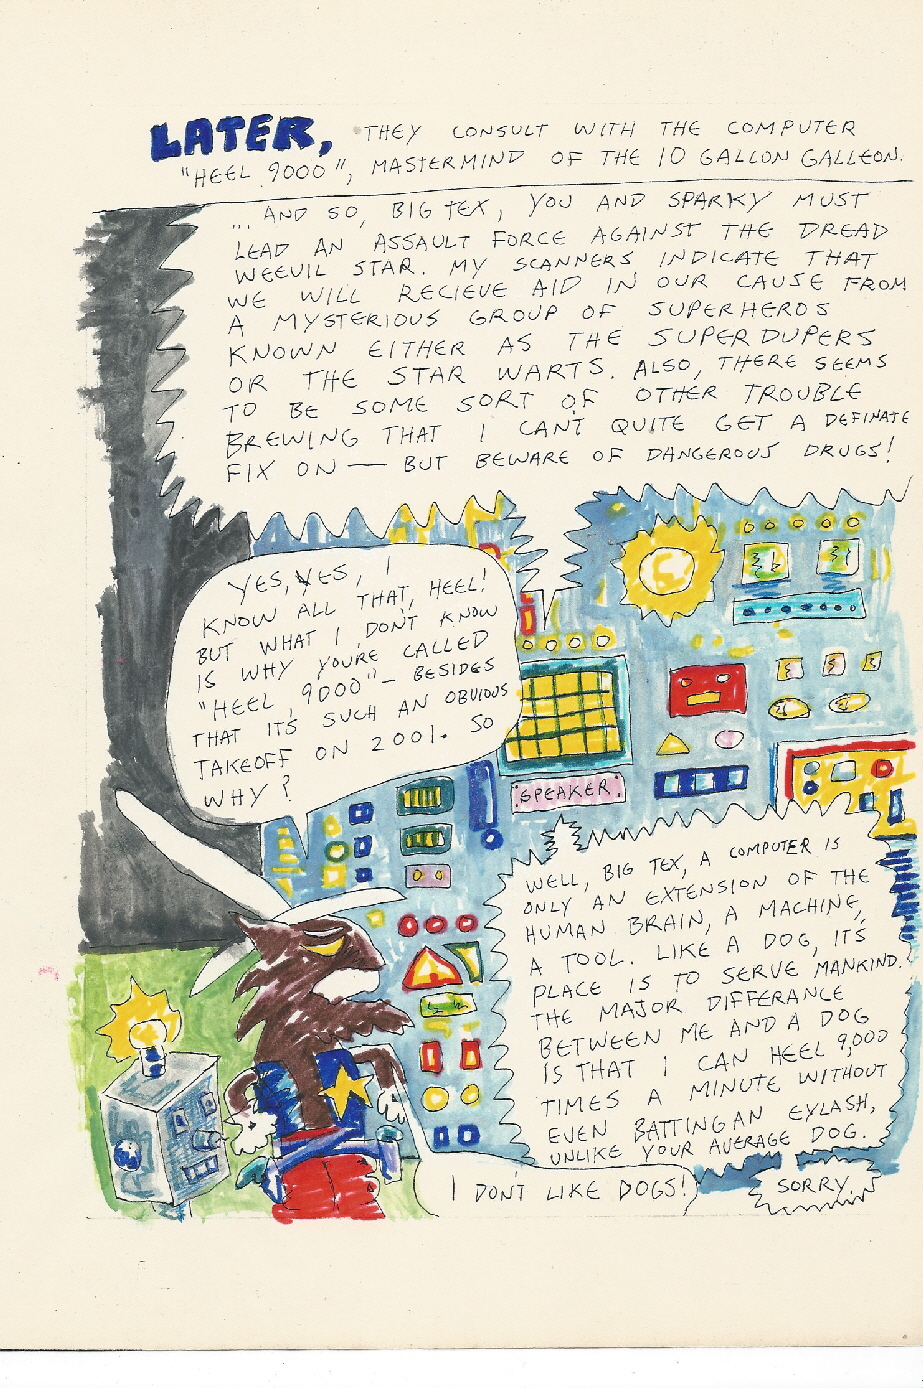 LATER, THEY CONSULT WITH THE COMPUTER
"HEEL 9000", MASTERMIND OF THE 10 GALLON GALLEON.
... AND SO, BIG TEX, YOU AND SPARKY MUST
LEAD AN ASSAULT FORCE AGAINST THE DREAD
WEEVIL STAR. MY SCANNERS INDICATE THAT
WE WILL RECIEVE AID IN OUR CAUSE FROM
A MYSTERIOUS GROUP OF SUPERHEROS
KNOWN EITHER AS THE SUPERDUPERS
OR THE STAR WARTS. ALSO, THERE SEEMS
TO BE SOME SORT OF OTHER TROUBLE
BREWING THAT I CAN'T QUITE GET A DEFINATE
FIX ON — BUT BEWARE OF DANGEROUS DRUGS!
YES, YES, I
KNOW ALL THAT, HEEL!
BUT WHAT I DON'T KNOW
IS WHY YOU'RE CALLED
"HEEL, 9000" - BESIDES
THAT IT'S SUCH AN OBVIOUS
TAKEOFF ON 2001. SO
WHY?
SPEAKER
WELL, BIG TEX, A COMPUTER IS
ONLY AN EXTENSION OF THE
HUMAN BRAIN, A MACHINE,
A TOOL. LIKE A DOG, IT'S
PLACE IS TO SERVE MANKIND.
THE MAJOR DIFFERANCE
BETWEEN ME AND A DOG
IS THAT I CAN HEEL 9,000
TIMES A MINUTE WITHOUT
EVEN BATTING AN EYLASH,
UNLIKE YOUR AVERAGE DOG.
I DON'T LIKE DOGS!
SORRY.